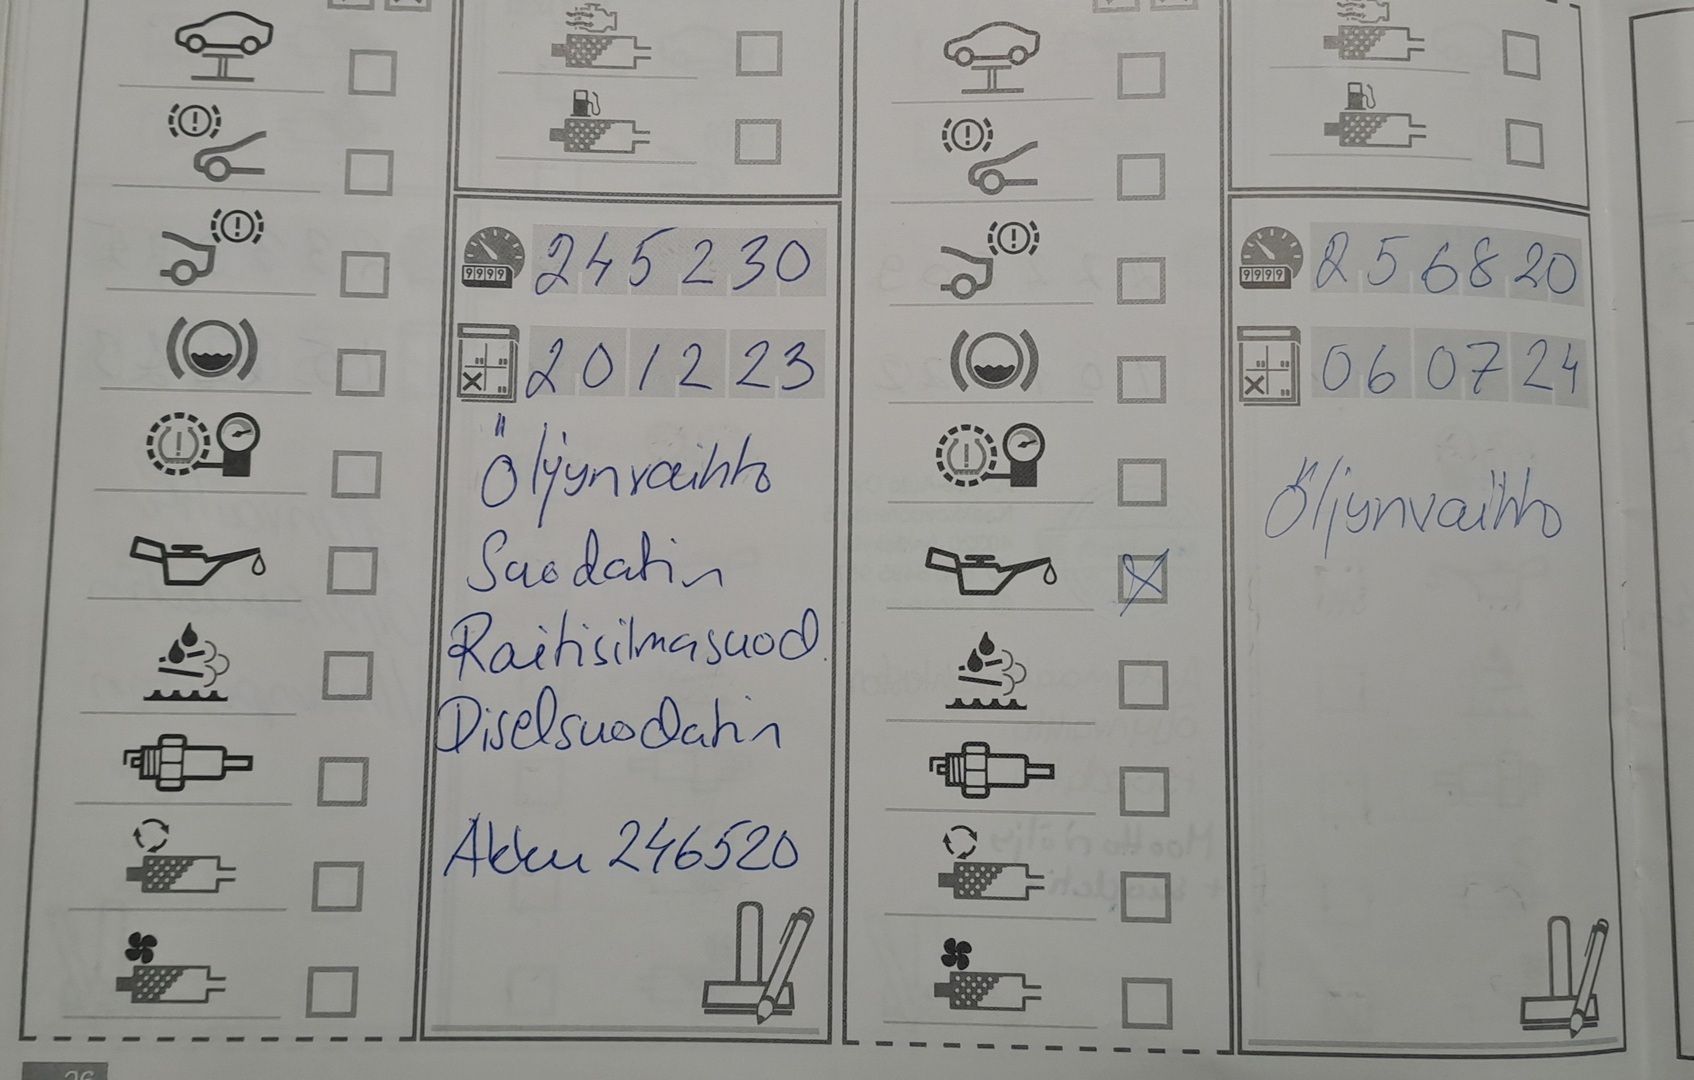 245230
201223
Öljynvaihto
Suodatin
Raitisilmasuod.
Diselsuodatin
Akku 246520
256820
060724
Öljynvaihto